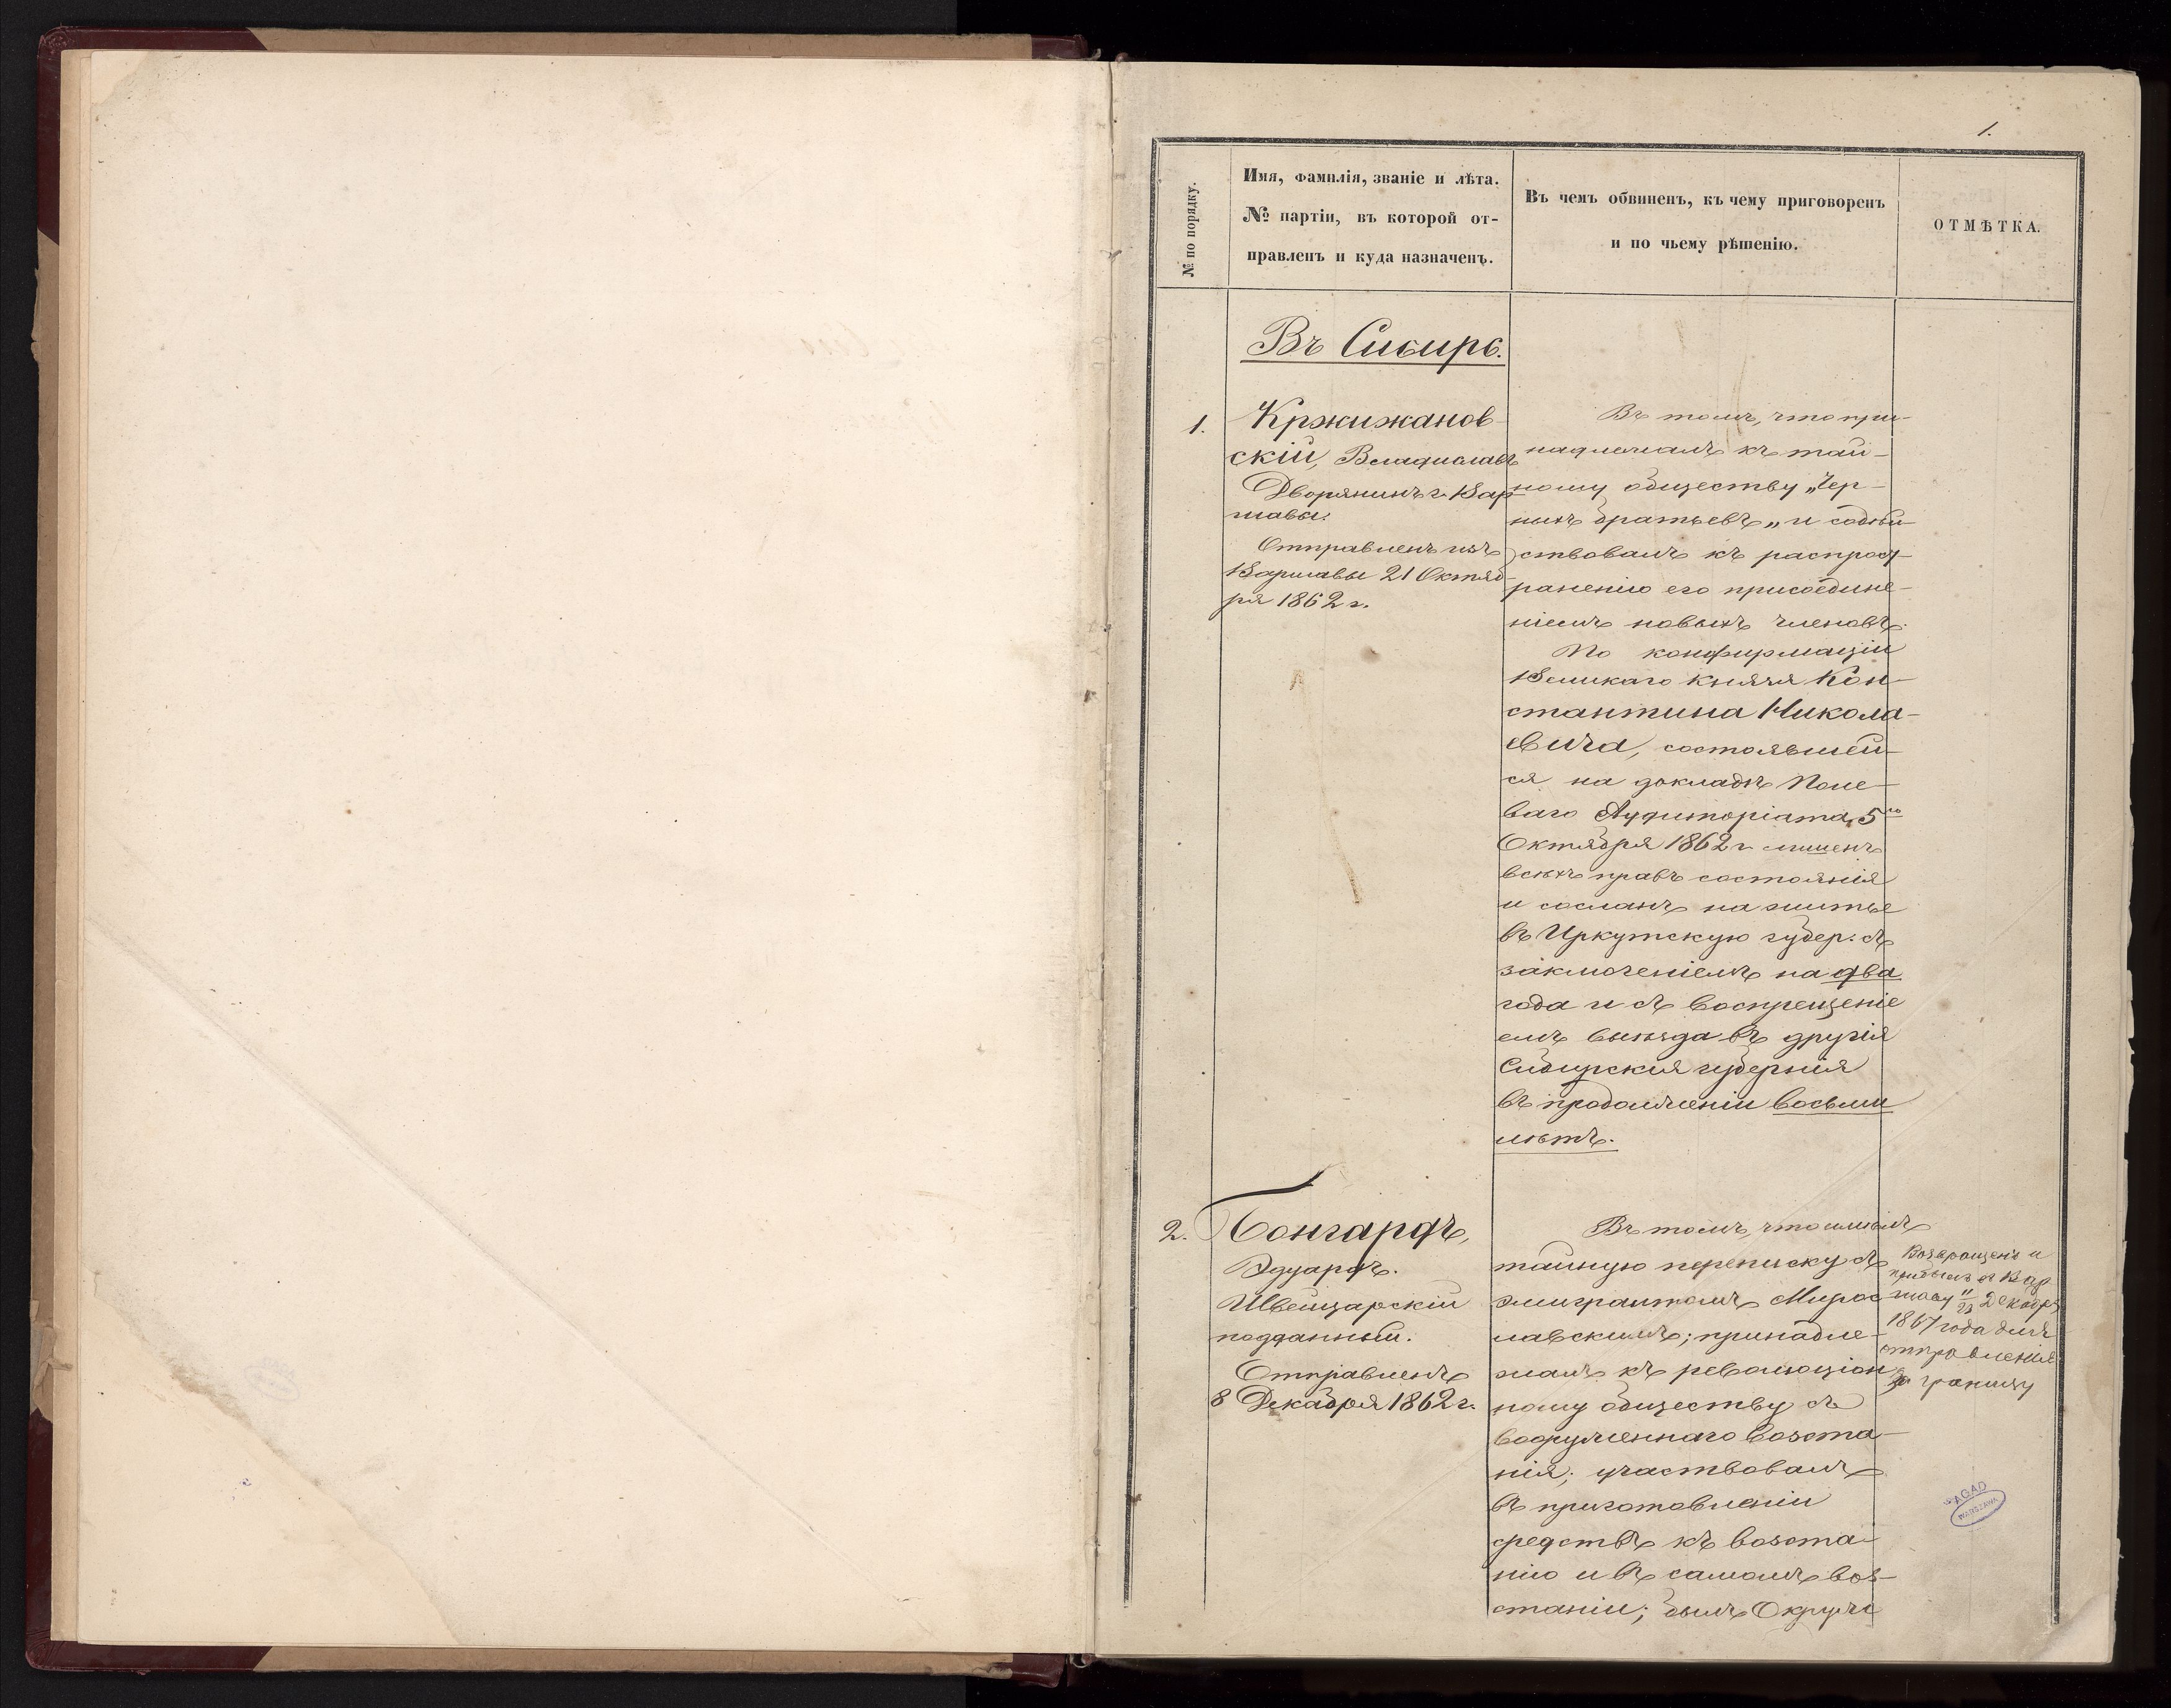 1.
№ по порядку.
Имя, фамилія, званіе и лѣта.
№ партіи, въ которой от-
правленъ и куда назначенъ.
Въ чемъ обвиненъ, къ чему приговоренъ
и по чьему рѣшенію.
ОТМѢТКА.
Въ Сибирь.
1.
Кржижанов-
скій, Владиславъ
Дворянинъ г. Вар-
шавы.
Отправленъ изъ
Варшавы 21 Октяб-
ря 1862 г.
Въ томъ, что при-
надлежалъ къ тай-
ному обществу „Чер-
ныхъ братьевъ„ и содѣй-
ствовалъ къ распрост-
раненію его присоедине-
ніемъ новыхъ членовъ.
По конфирмаціи
Великаго Князя Кон-
стантина Никола-
евича, состоявшей-
ся на докладѣ Поле-
ваго Аудиторіата, 5го
Октября 1862 г. лишенъ
всѣхъ правъ состоянія
и сосланъ на житье
въ Иркутскую губер. съ
заключеніемъ на два
года и съ воспрещеніе
емъ выѣзда въ другія
Сибирскія губерніи
въ продолженіи восьми
лѣтъ.
2.
Бонгардъ,
Эдуардъ.
Швейцарскій
подданный.
Отправленъ
8 Декабря 1862 г.
Въ томъ, что имѣлъ
тайную переписку съ
эмигрантомъ Мирос
лавскимъ; принадле-
жалъ къ революціон
ному обществу съ
вооруженнаго возста-
нія; участвовалъ
въ приготовленіи
средствъ къ возста-
нію и въ самомъ воз-
станіи; былъ Окружн
Возвращенъ и
прибылъ въ Вар
шаву 11/23 Декабря
1867 года для
отправленія
за границу
AGAD
WARSZAWA